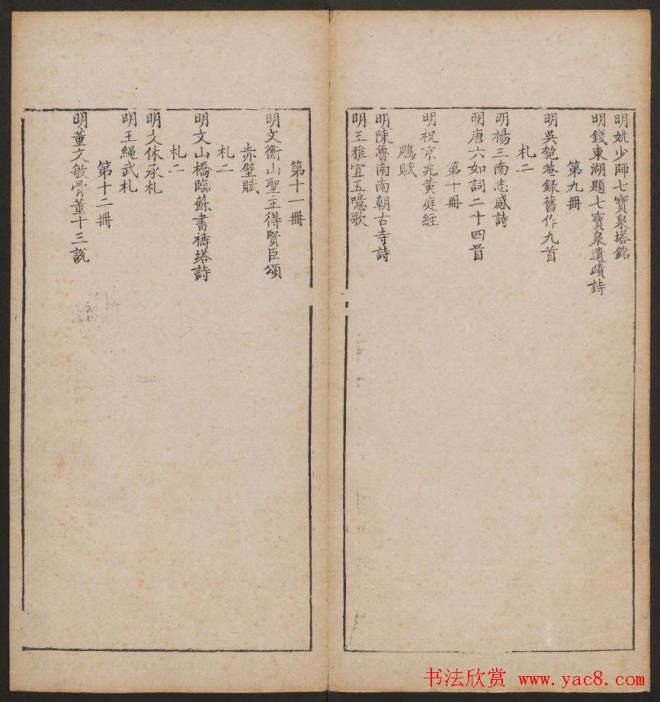 明姚少師七寶泉塔銘
明錢東湖題七寶泉遺蹟詩
第九冊
明吳匏菴錄舊作九首
札二
明楊三南志感詩
明唐六如詞二十四首
第十冊
明祝京兆黃庭經
鵩賦
明陳魯南南朝古寺詩
明王雅宜五噫歌
第十一冊
明文衡山聖主得賢臣頌
赤壁賦
札二
明文山橋臨蘇書禱塔詩
札二
明文休承札
明王繩武札
第十二冊
明董文敏骨董十三說
书法欣赏 www.yac8.com